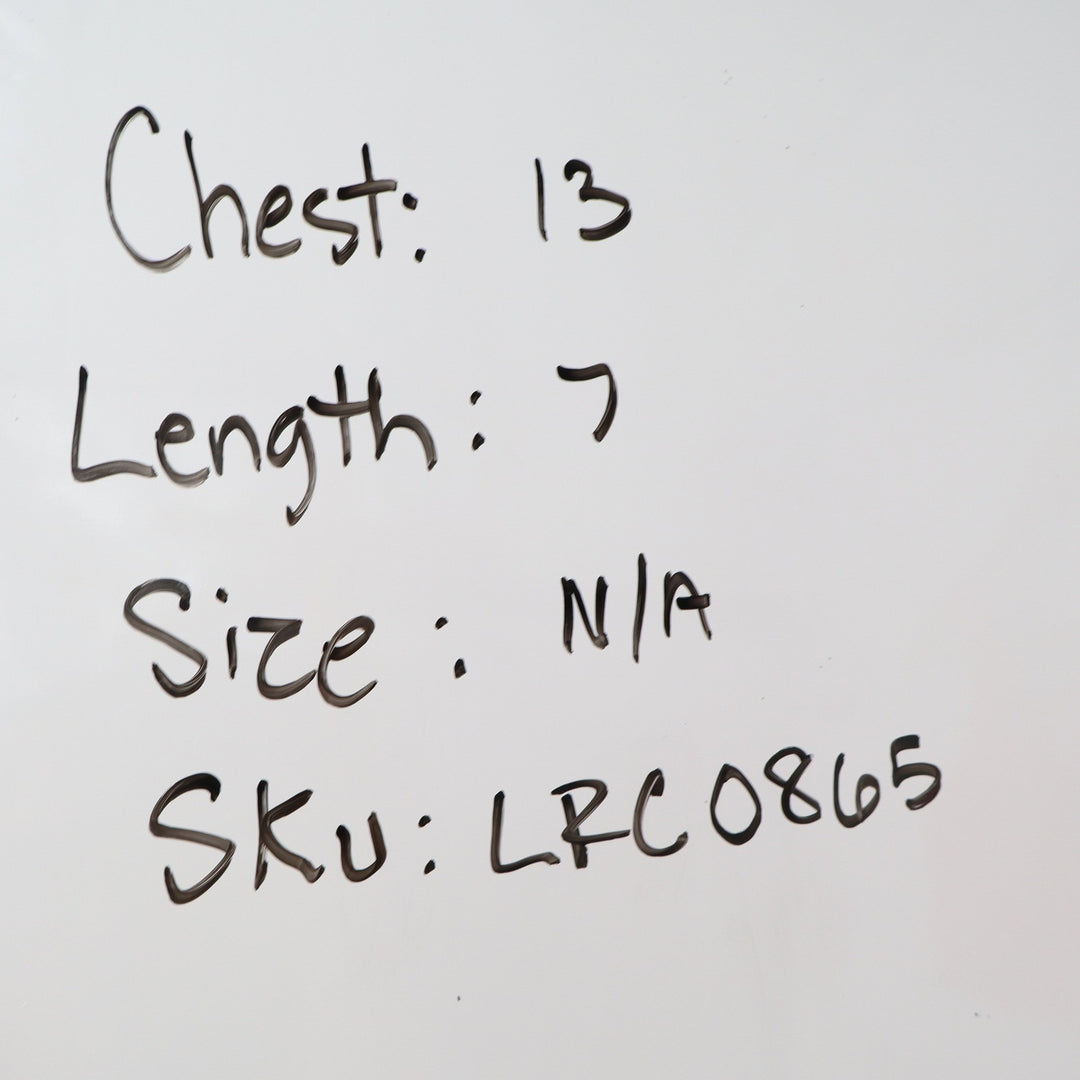 Chest: 13
Length: 7
Size: N/A
SKU: LRC0865